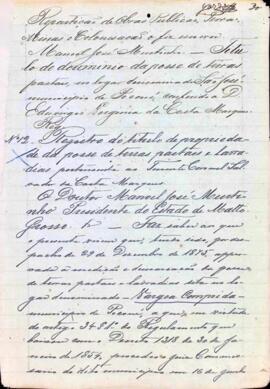 Repartição de Obras Publicas, Terras,
Minas e Colonisação o fiz escrever
Manoel José Murtinho. — Titu-
lo de dominio da posse de terras
pastaes, no lugar denominado São José
municipio de Poconé, conferido a D.
Eduwiges Eugenia da Costa Marques
Nº 12. Registro do titulo de proprieda-
de da posse de terras pastaes e lavra-
dias pertencente ao Tenente Coronel Sal-
vador da Costa Marques.
O Doutor Manoel José Murti-
nho, Presidente do Estado de Matto
Grosso. Faz saber aos que
o presente virem que, tendo sido, por des-
pacho de 29 de Dezembro de 1875, appro-
vada a medição e demarcação da posse
de terras pastaes e lavradias sita no lu-
gar denominado Vargea Comprida
municipio de Poconé, a que, em virtude
do artigo 34 § 1º do Regulamento que
baixou com o Decreto 1318 de 30 de Ja-
neiro de 1854, procedeu o Juiz Commissa-
rio do dito municipio em 16 de Junho